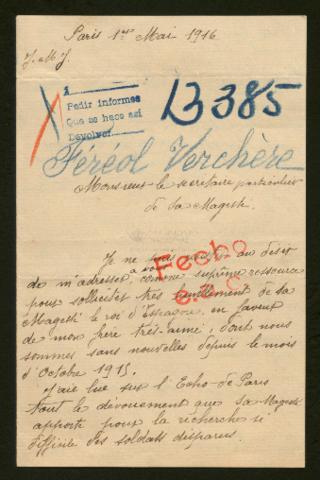 Paris 1er Mai 1916
J. M. J.
A
Pedir informes
Que se hace así
Devolver
B 385
Féréol Verchère
Monsieur le secrétaire particulier
de Sa Majesté
Je me suis au désir
de m'adresser à vous comme suprême ressource
pour solliciter très humblement de sa
Majesté le roi d'Espagne, en faveur
de mon frère très-aimé, dont nous
sommes sans nouvelles depuis le mois
d'Octobre 1915.
Fecho
J'ai lu sur l'Echo de Paris
tout le dévouement que Sa Majesté
apporte pour la recherche si
difficile des soldats disparus.